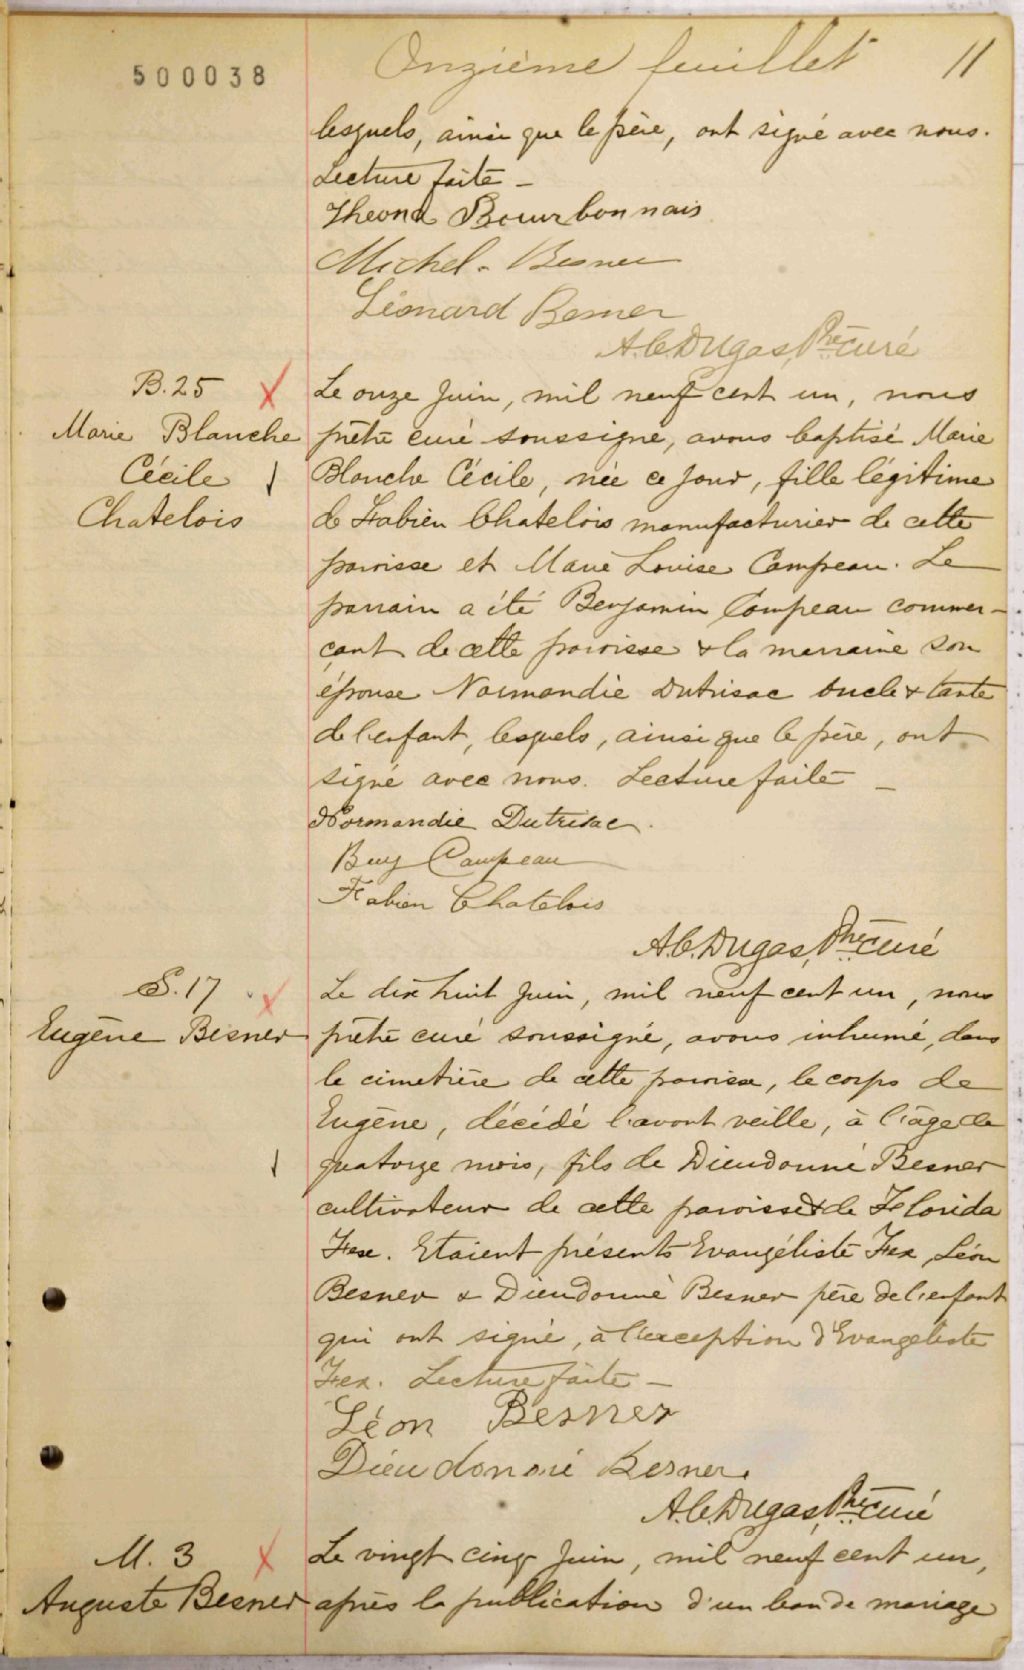 500038
Onzième feuillet 11
lesquels, ainsi que le père, ont signé avec nous.
Lecture faite —
Theona Bourbonnais
Michel Besner
Léonard Besner
A.C. Dugas, Ptre curé
B. 25
Marie Blanche
Cécile
Chatelois
Le onze Juin, mil neuf cent un, nous
prêtre curé soussigné, avons baptisé Marie
Blanche Cécile, née ce jour, fille légitime
de Fabien Chatelois manufacturier de cette
paroisse et Marie Louise Campeau. Le
parrain a été Benjamin Campeau commer-
çant de cette paroisse & la marraine son
épouse Normandie Dutrisac oncle & tante
de l'enfant, lesquels, ainsi que le père, ont
signé avec nous. Lecture faite —
Normandie Dutrisac.
Benj Campeau
Fabien Chatelois
A.C. Dugas, Ptre curé
S. 17
Eugène Besner
Le dix huit Juin, mil neuf cent un, nous
prêtre curé soussigné, avons inhumé, dans
le cimetière de cette paroisse, le corps de
Eugène, décédé l'avant veille, à l'âge de
quatorze mois, fils de Dieudonné Besner
cultivateur de cette paroisse & de Florida
Fex. Etaient présents Evangéliste Fex, Léon
Besner & Dieudonné Besner père de l'enfant
qui ont signé, à l'exception d'Evangéliste
Fex. Lecture faite —
Léon Besner
Dieudonné Besner.
A.C. Dugas, Ptre curé
M. 3
Auguste Besner
Le vingt cinq Juin, mil neuf cent un,
après la publication d'un ban de mariage